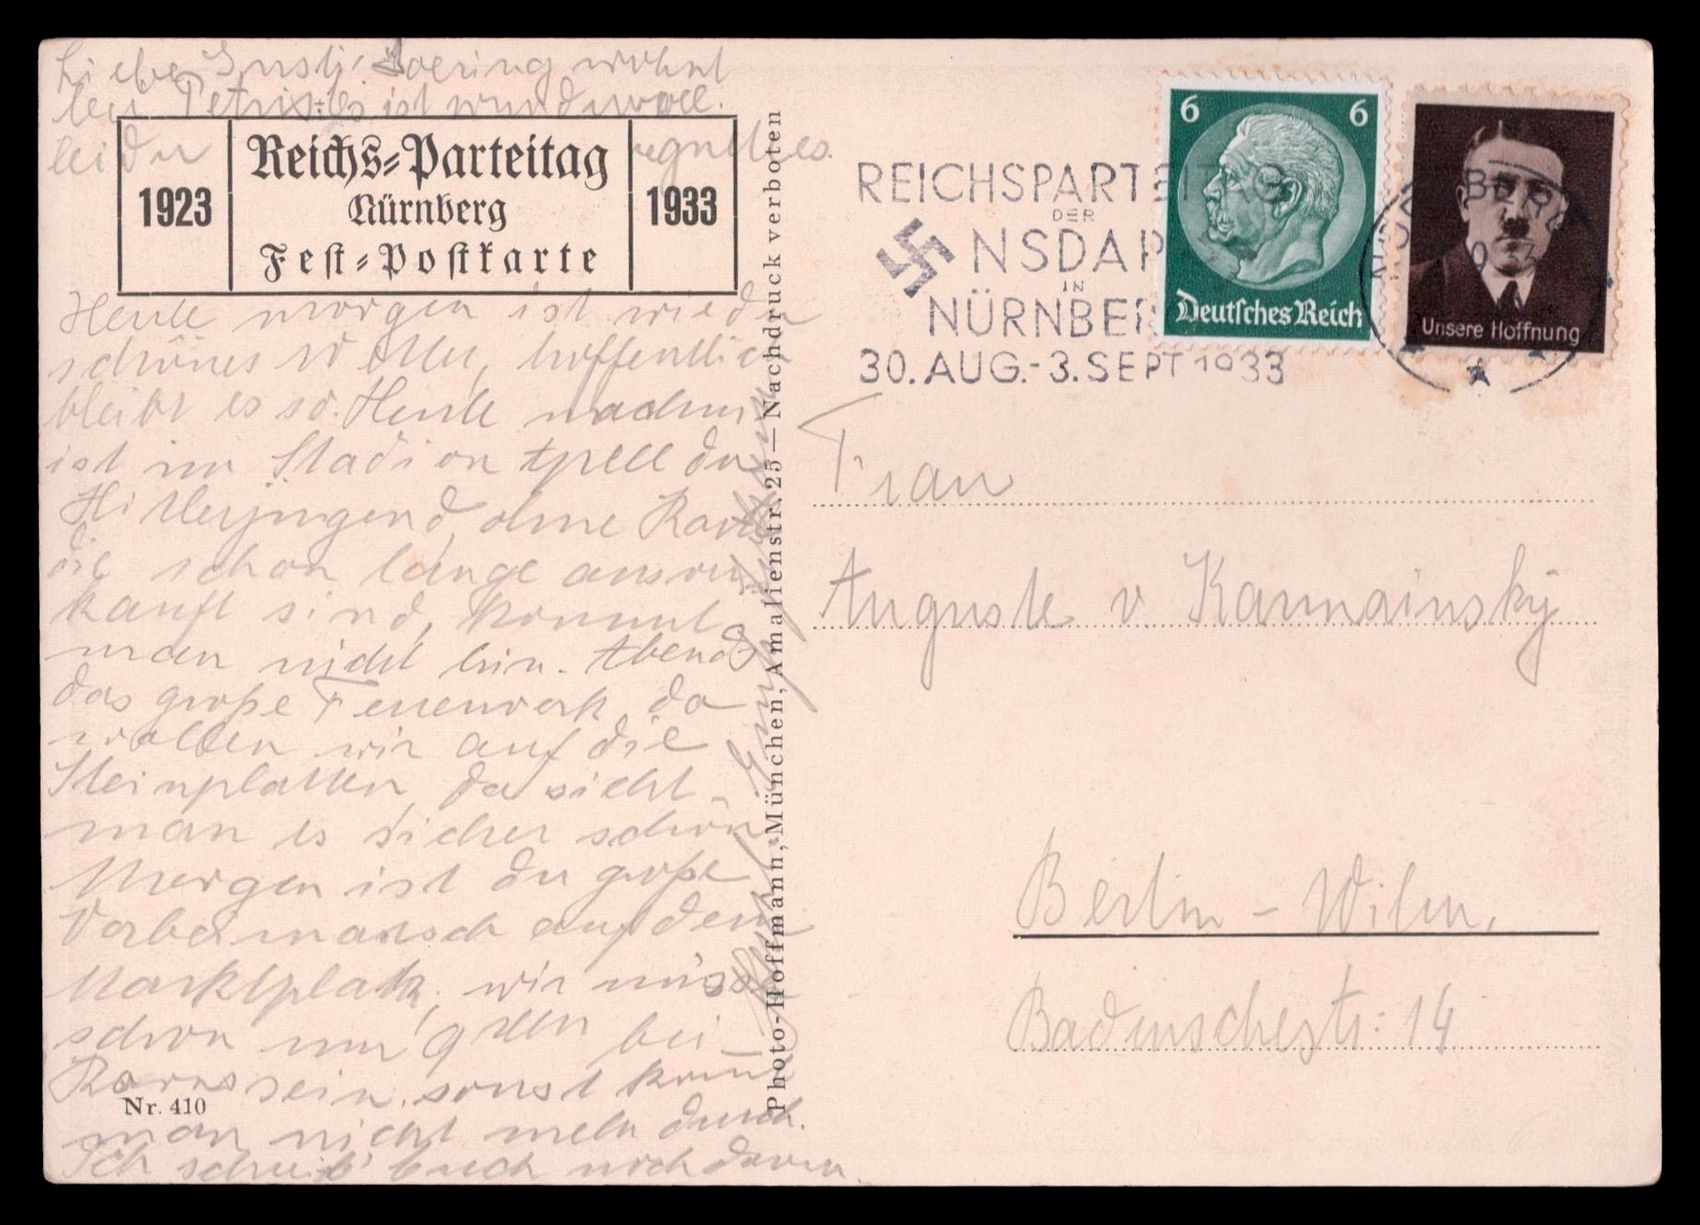 Liebe Gusti! Goering wohnt
bei Petri. Es ist wundervoll.
leider regnet es.
Reichs-Parteitag
1923 Nürnberg 1933
Fest-Postkarte
Heute morgen ist wieder
schönes Wetter, hoffentlich
bleibt es so. Heute nachm.
ist im Stadion Apell der
Hitlerjugend, ohne Karte
die schon länge ausver-
kauft sind, kommt
man nicht hin. Abends
das große Feuerwerk, da
wollen wir auf die
Steinplatten, da sieht
man es sicher schön
Morgen ist der große
Vorbeimarsch auf dem
Marktplatz, wir müssen
schon um 9 bei
sein, sonst kommt
man nicht mehr durch.
Ich schreib' Euch noch davon
Nr. 410
Photo-Hoffmann, München, Amalienstr. 25 — Nachdruck verboten
REICHSPARTEITAG
DER
NSDAP
IN
NÜRNBER
30. AUG.-3. SEPT 1933
6 6
Deutsches Reich
Unsere Hoffnung
Frau
Auguste v Karmainsky
Berlin - Wilm.
Badenschestr: 14